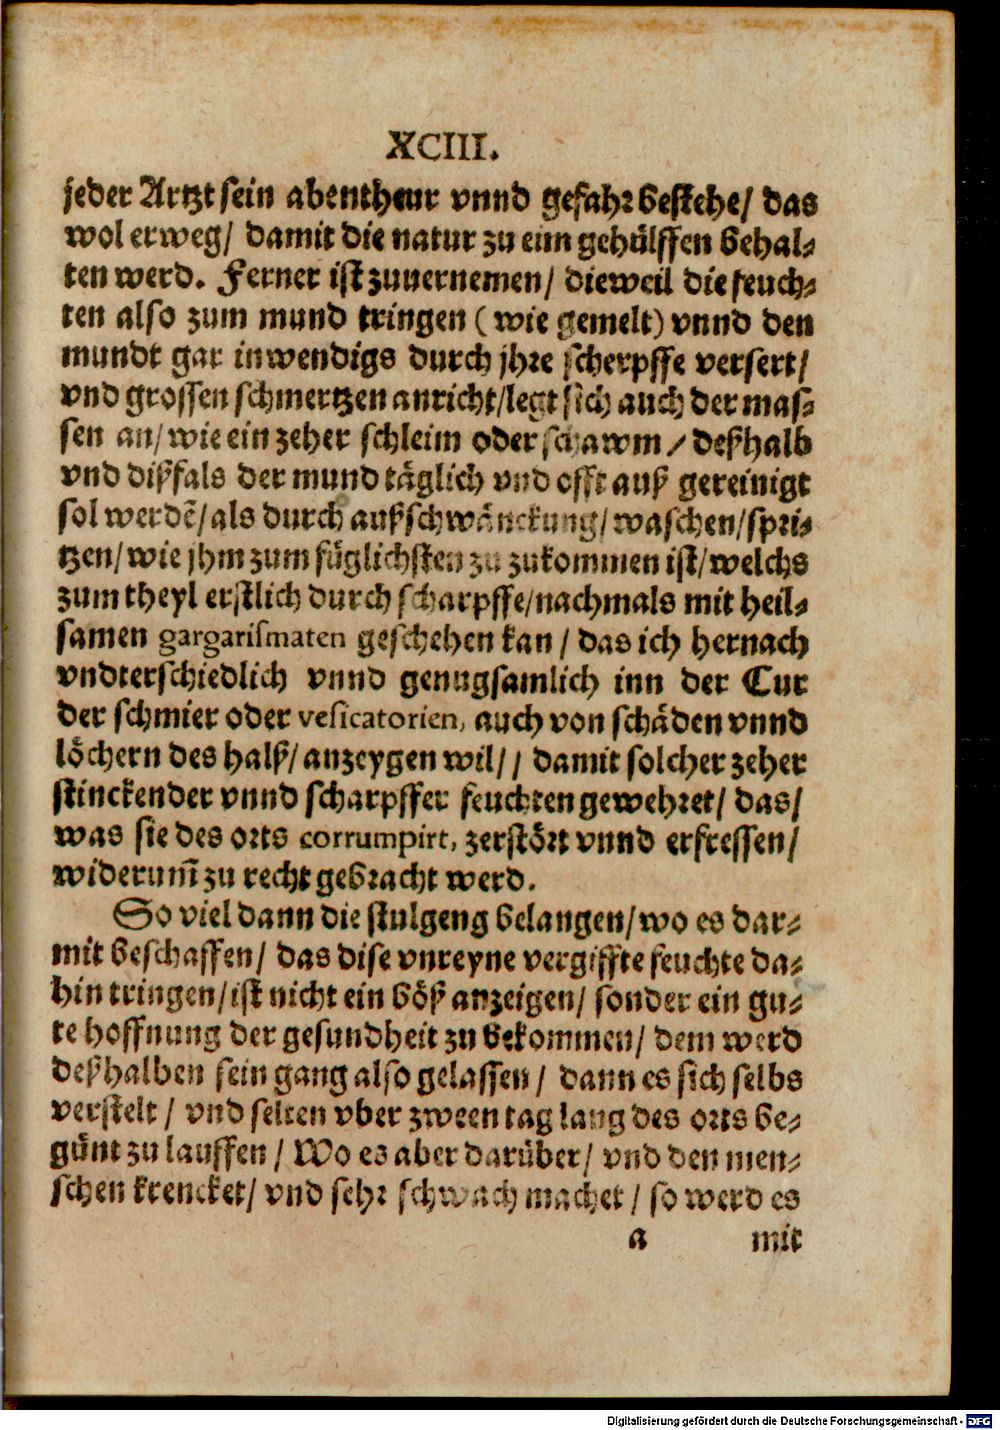 XCIII.
jeder Artzt sein abentheur vnnd gefahr bestehe/ das
wol erweg/ damit die natur zu eim gehülffen behal-
ten werd. Ferner ist zuuernemen/ dieweil die feuch-
ten also zum mund tringen (wie gemelt) vnnd den
mundt gar inwendigs durch jhre scherpffe versert/
vnd grossen schmertzen anricht/legt sich auch der mas-
sen an/ wie ein zeher schleim oder schawm/ deßhalb
vnd dißfals der mund täglich vnd offt auß gereinigt
sol werdē/ als durch außschwänckung/ waschen/ spri-
tzen/ wie jhm zum füglichsten zu zukommen ist/ welchs
zum theyl erstlich durch scharpffe/ nachmals mit heil-
samen gargarismaten geschehen kan/ das ich hernach
vndterschiedlich vnnd genugsamlich inn der Cur
der schmier oder vesicatorien, auch von schäden vnnd
löchern des halß/ anzeygen wil// damit solcher zeher
stinckender vnnd scharpffer feuchten gewehret/ das/
was sie des orts corrumpirt, zerstört vnnd erfressen/
widerum̄ zu recht gebracht werd.
So viel dann die stulgeng belangen/ wo es dar-
mit beschaffen/ das dise vnreyne vergiffte feuchte da-
hin tringen/ ist nicht ein böß anzeigen/ sonder ein gu-
te hoffnung der gesundheit zu bekommen/ dem werd
deßhalben sein gang also gelassen/ dann es sich selbs
verstelt/ vnd selten vber zween tag lang des orts be-
günt zu lauffen/ Wo es aber darüber/ vnd den men-
schen krencket/ vnd sehr schwach machet/ so werd es
a mit
Digitalisierung gefördert durch die Deutsche Forschungsgemeinschaft - DFG